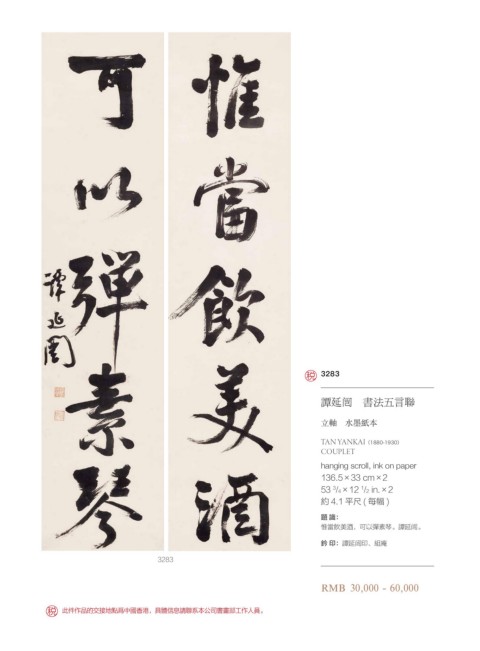 惟當飲美酒
可以彈素琴
譚延闿
3283
税 3283
譚延闿 書法五言聯
立軸 水墨紙本
TAN YANKAI (1880-1930)
COUPLET
hanging scroll, ink on paper
136.5 × 33 cm × 2
53 3/4 × 12 1/2 in. × 2
約 4.1 平尺 ( 每幅 )
題識:
惟當飲美酒,可以彈素琴。譚延闿。
鈐印:譚延闿印、組庵
RMB 30,000 - 60,000
税 此件作品的交接地點爲中國香港,具體信息請聯系本公司書畫部工作人員。